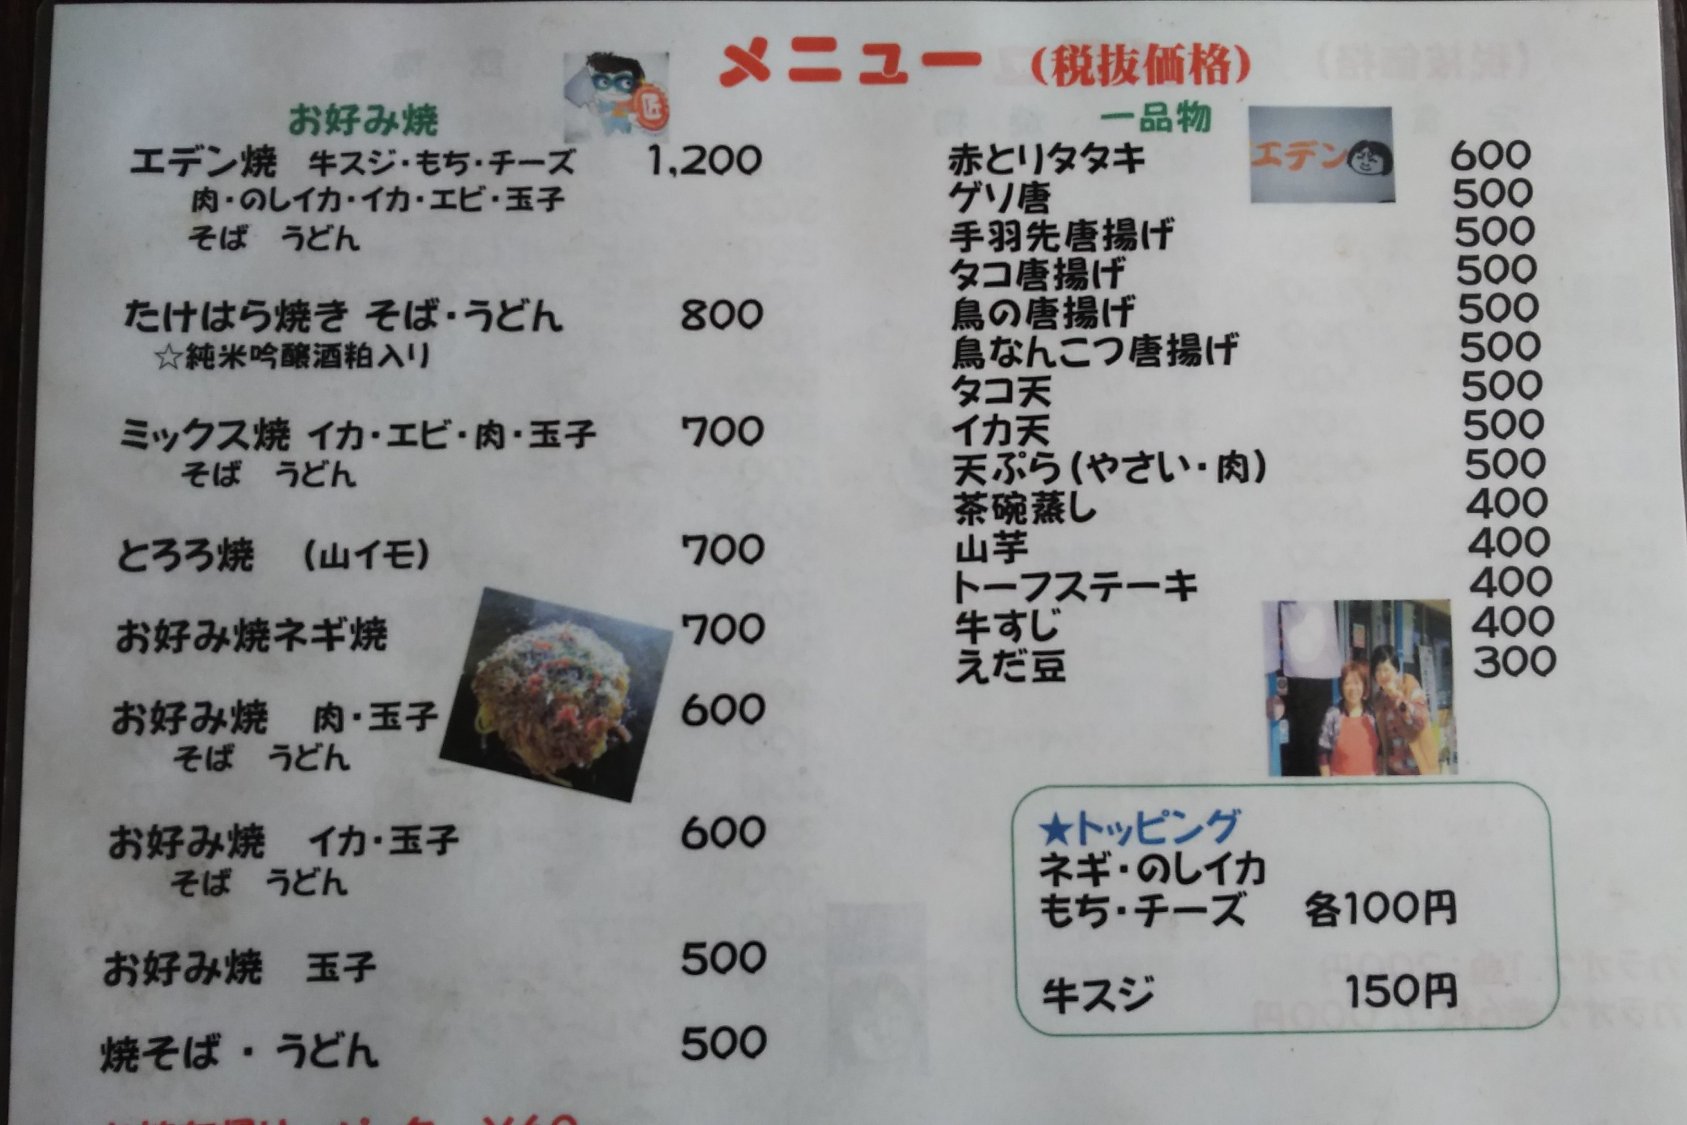 メニュー (税抜価格)
お好み焼
匠
エデン焼 牛スジ・もち・チーズ 1,200
肉・のしイカ・イカ・エビ・玉子
そば うどん
たけはら焼き そば・うどん 800
☆純米吟醸酒粕入り
ミックス焼 イカ・エビ・肉・玉子 700
そば うどん
とろろ焼 (山イモ) 700
お好み焼ネギ焼 700
お好み焼 肉・玉子 600
そば うどん
お好み焼 イカ・玉子 600
そば うどん
お好み焼 玉子 500
焼そば・うどん 500
一品物
エデン
赤とりタタキ 600
ゲソ唐 500
手羽先唐揚げ 500
タコ唐揚げ 500
鳥の唐揚げ 500
鳥なんこつ唐揚げ 500
タコ天 500
イカ天 500
天ぷら(やさい・肉) 500
茶碗蒸し 400
山芋 400
トーフステーキ 400
牛すじ 400
えだ豆 300
★トッピング
ネギ・のしイカ
もち・チーズ 各100円
牛スジ 150円